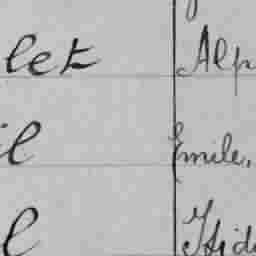 let Alp
il Emile,
l Isid